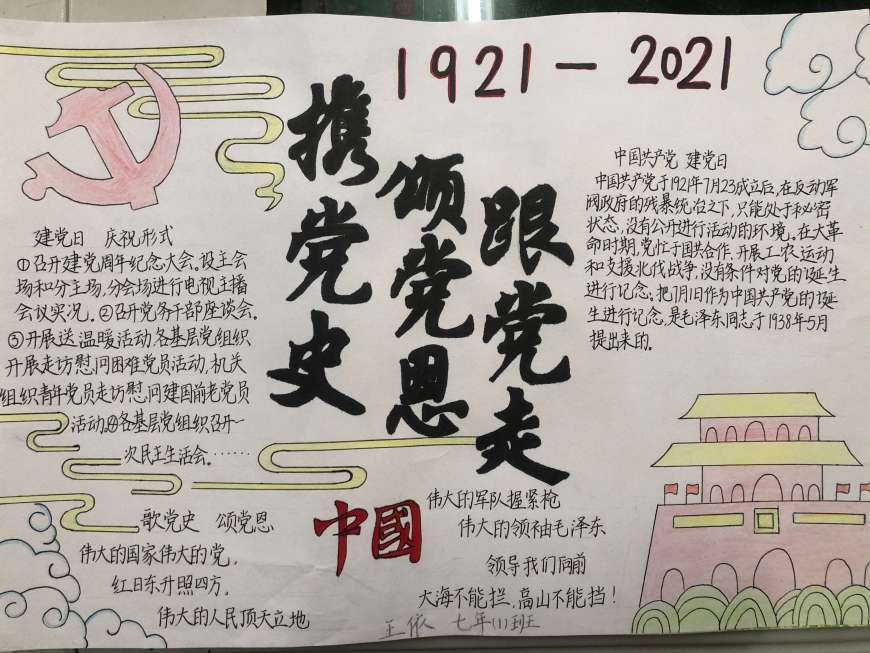 1921-2021
携党史
颂党恩
跟党走
建党日 庆祝形式
①召开建党周年纪念大会。设主会
场和分主场,分会场进行电视主播
会议实况。②召开党务干部座谈会。
③开展送温暖活动,各基层党组织
开展走访慰问困难党员活动,机关
组织青年党员走访慰问建国前老党员
活动。④各基层党组织召开一
次民主生活会。……
中国共产党 建党日
中国共产党于1921年7月23成立后,在反动军
阀政府的残暴统治之下,只能处于秘密
状态,没有公开进行活动的环境。在大革
命时期,党忙于国共合作、开展工农运动
和支援北伐战争,没有条件对党的诞生
进行记念。把7月1日作为中国共产党的诞
生进行记念,是毛泽东同志于1938年5月
提出来的。
歌党史 颂党恩
伟大的国家伟大的党,
红日东升照四方,
伟大的人民顶天立地
中國
伟大的军队握紧枪
伟大的领袖毛泽东
领导我们向前
大海不能拦,高山不能挡!
王依 七年(1)班